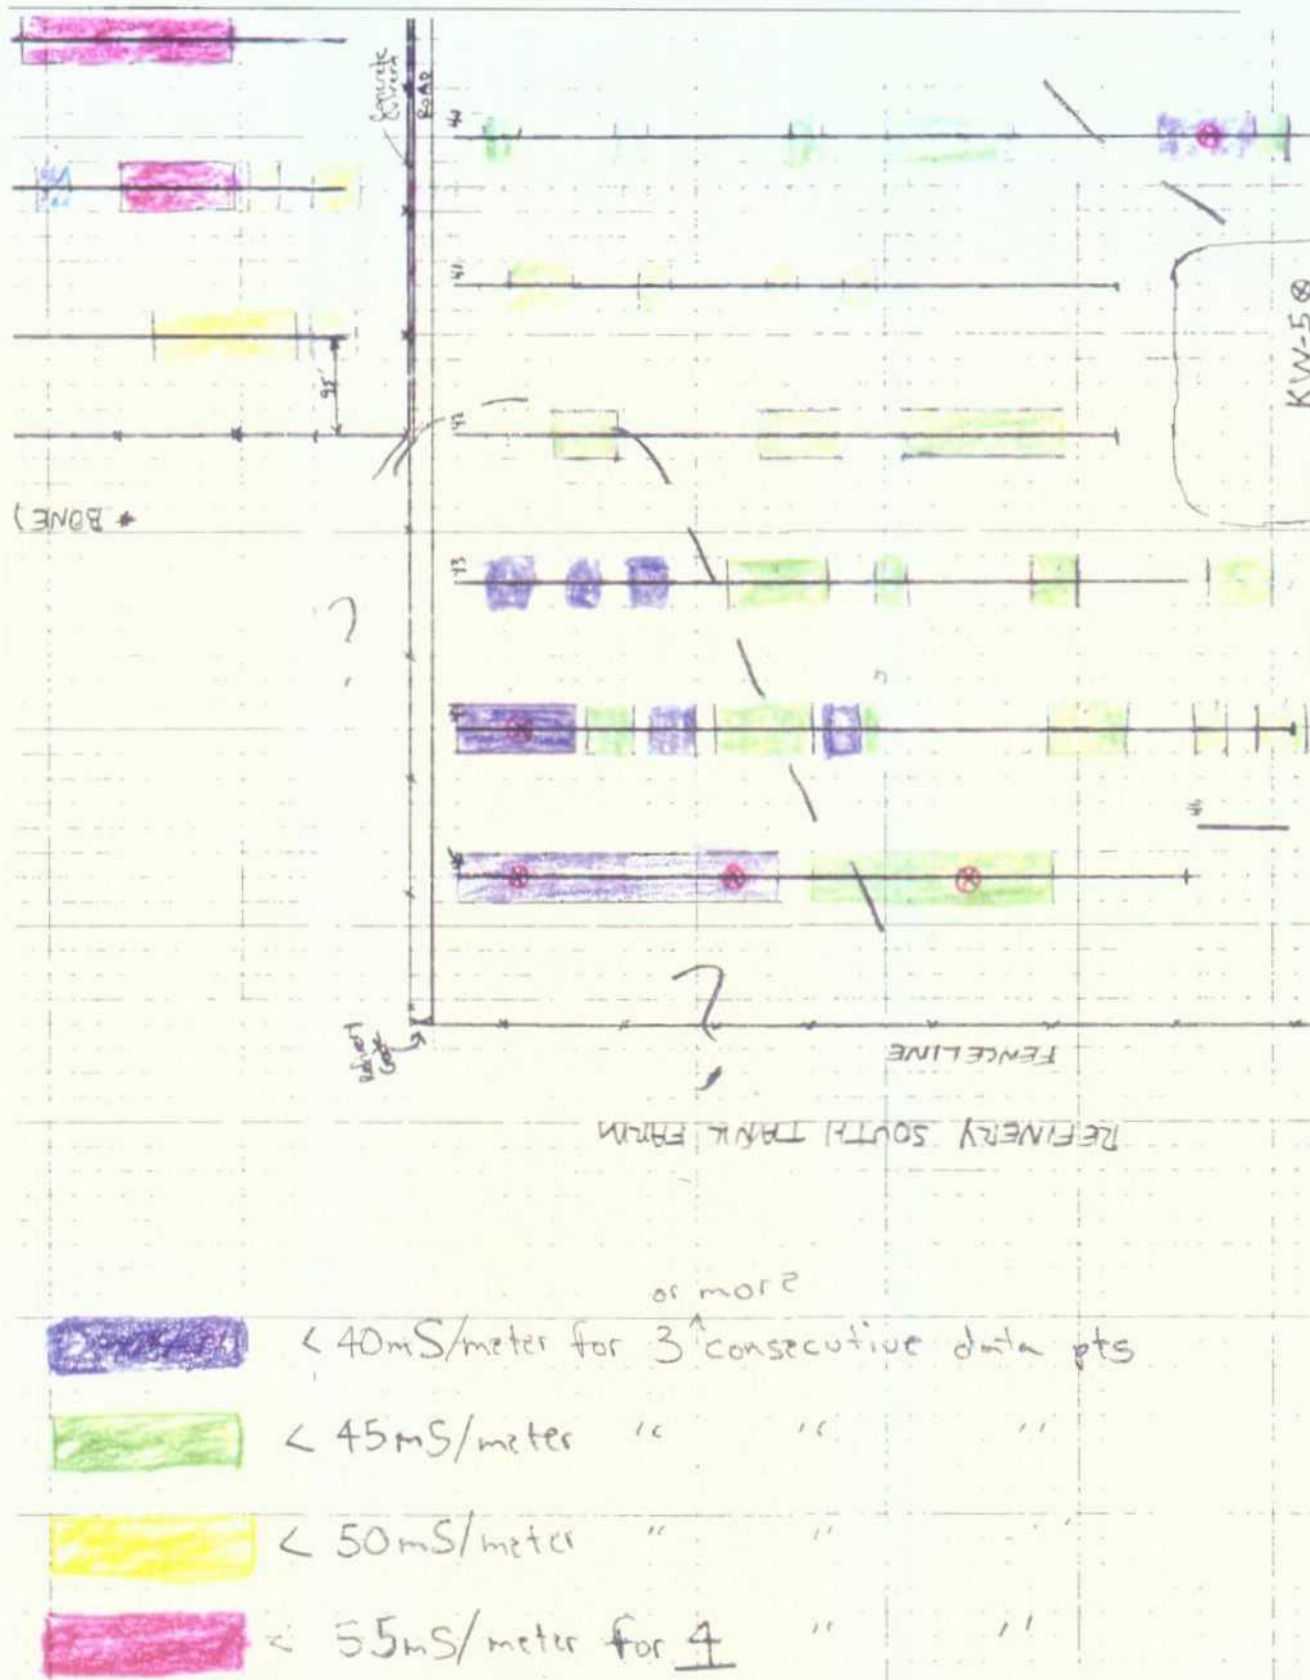 Concrete
ROAD
40
41
KW-5
95'
42
* BONE)
43
?
44
46
?
FENCELINE
REFINERY SOUTH TANK FARM
or more
< 40mS/meter for 3 ^ consecutive data pts
< 45mS/meter " " "
< 50mS/meter " " "
< 55mS/meter for 4 " "